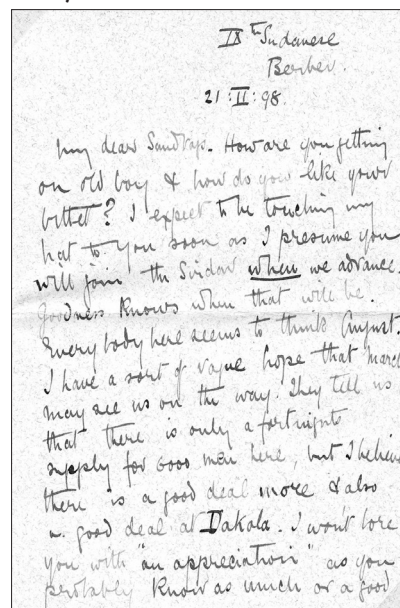 IXth Sudanese
Berber.
21:II:98.
My dear Sandbags. How are you getting
on old boy & how do you like your
billet? I expect to be touching my
hat to you soon as I presume you
will join the Sirdar when we advance.
Goodness knows when that will be.
Everybody here seems to think August.
I have a sort of vague hope that March
may see us on the way. They tell us
that there is only a fortnights
supply for 6000 men here, but I believe
there is a good deal more & also
a good deal at Dakala. I won't bore
you with "an appreciation" as you
probably know as much or a good